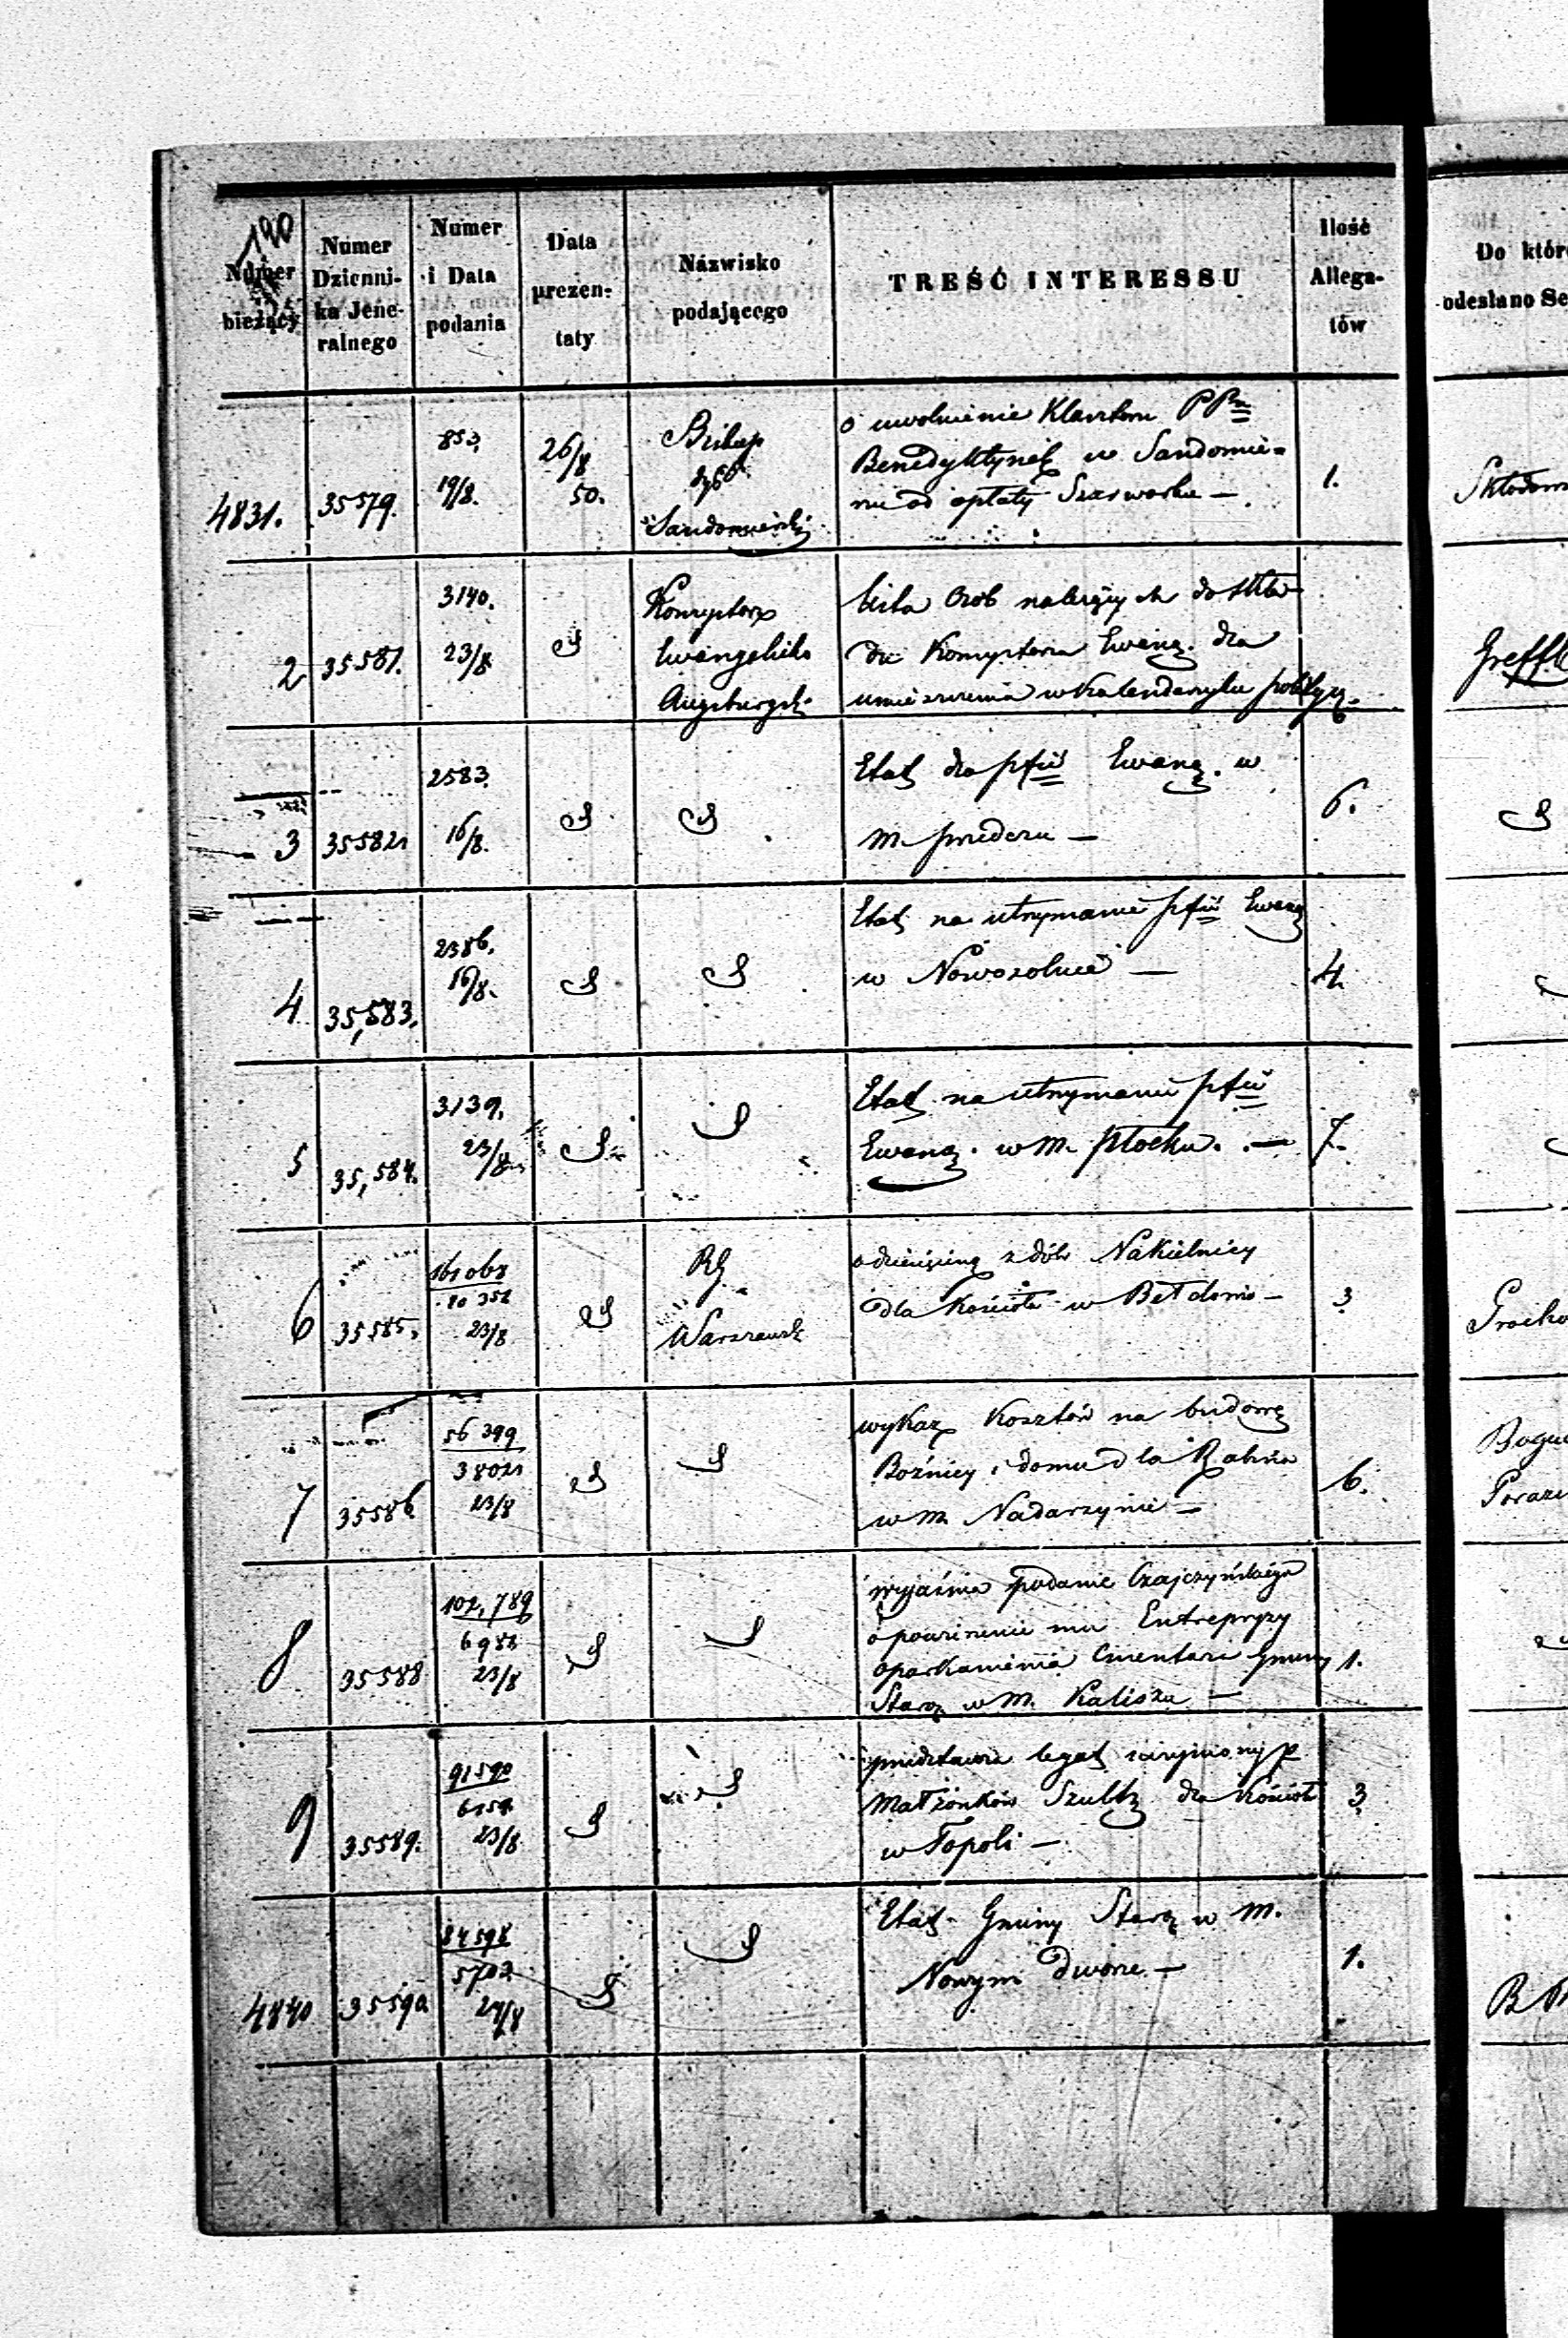 190
Numer bieżący
Numer Dzienni- ka Jene- ralnego
Numer i Data podania
Data prezen- taty
Nazwisko podającego
TREŚĆ INTERESSU
Ilość Allega- tów
Do któr
odesłano Se
4831. 35579. 853. 19/8. 26/8 50.
Biskup
Dyec
Sandomierski
o uwolnienie Klasztoru PPn
Benedyktynek w Sandomie-
rzu od opłaty Szarwarku —
1.
2 35581. 3140. 23/8
Konsystorz
Ewangelicko
Augsburgsk.
lista Osób należących do skła-
du Konsystorza Ewang. dla
umieszczenia w Kalendarzyku politycz.
Greffe
3 35582 2583. 16/8.
Etat dla pfii Ewang. w
m.
6.
4 35,583. 2386. 16/8.
Etat na utrzymanie pfii Ewang
w Nowosolnie —
4.
5 35,584. 3139. 23/8
Etat na utrzymanie pfii
Ewang. w m. Płocku. —
7.
6 35585. 161068 23/8
RG.
Warszawsk
o dziesięcinę z dóbr Nakielnicy
dla Kościoła w Bełdowie —
3
7 35586 56399 3802 23/8
wykaz Kosztów na budowę
Bożnicy i domu dla Rabina
w m. Nadarzynie —
6.
8 35588 102,789 6982 23/8
wyjaśnia podanie Czajczyńskiego
o powierzenie mu Entrepryzy
oparkanienia Cmentarza Gminy
Staroz w m. Kaliszu —
1.
9 35589. 91590 6159 23/8
przedstawia legat uczyniony p.
Małżonków Szultz dla Kościoła
w Topoli —
3
4840 35590 84598 5703 24/8
Etat Gminy Staroz w m.
Nowym Dworze —
1.